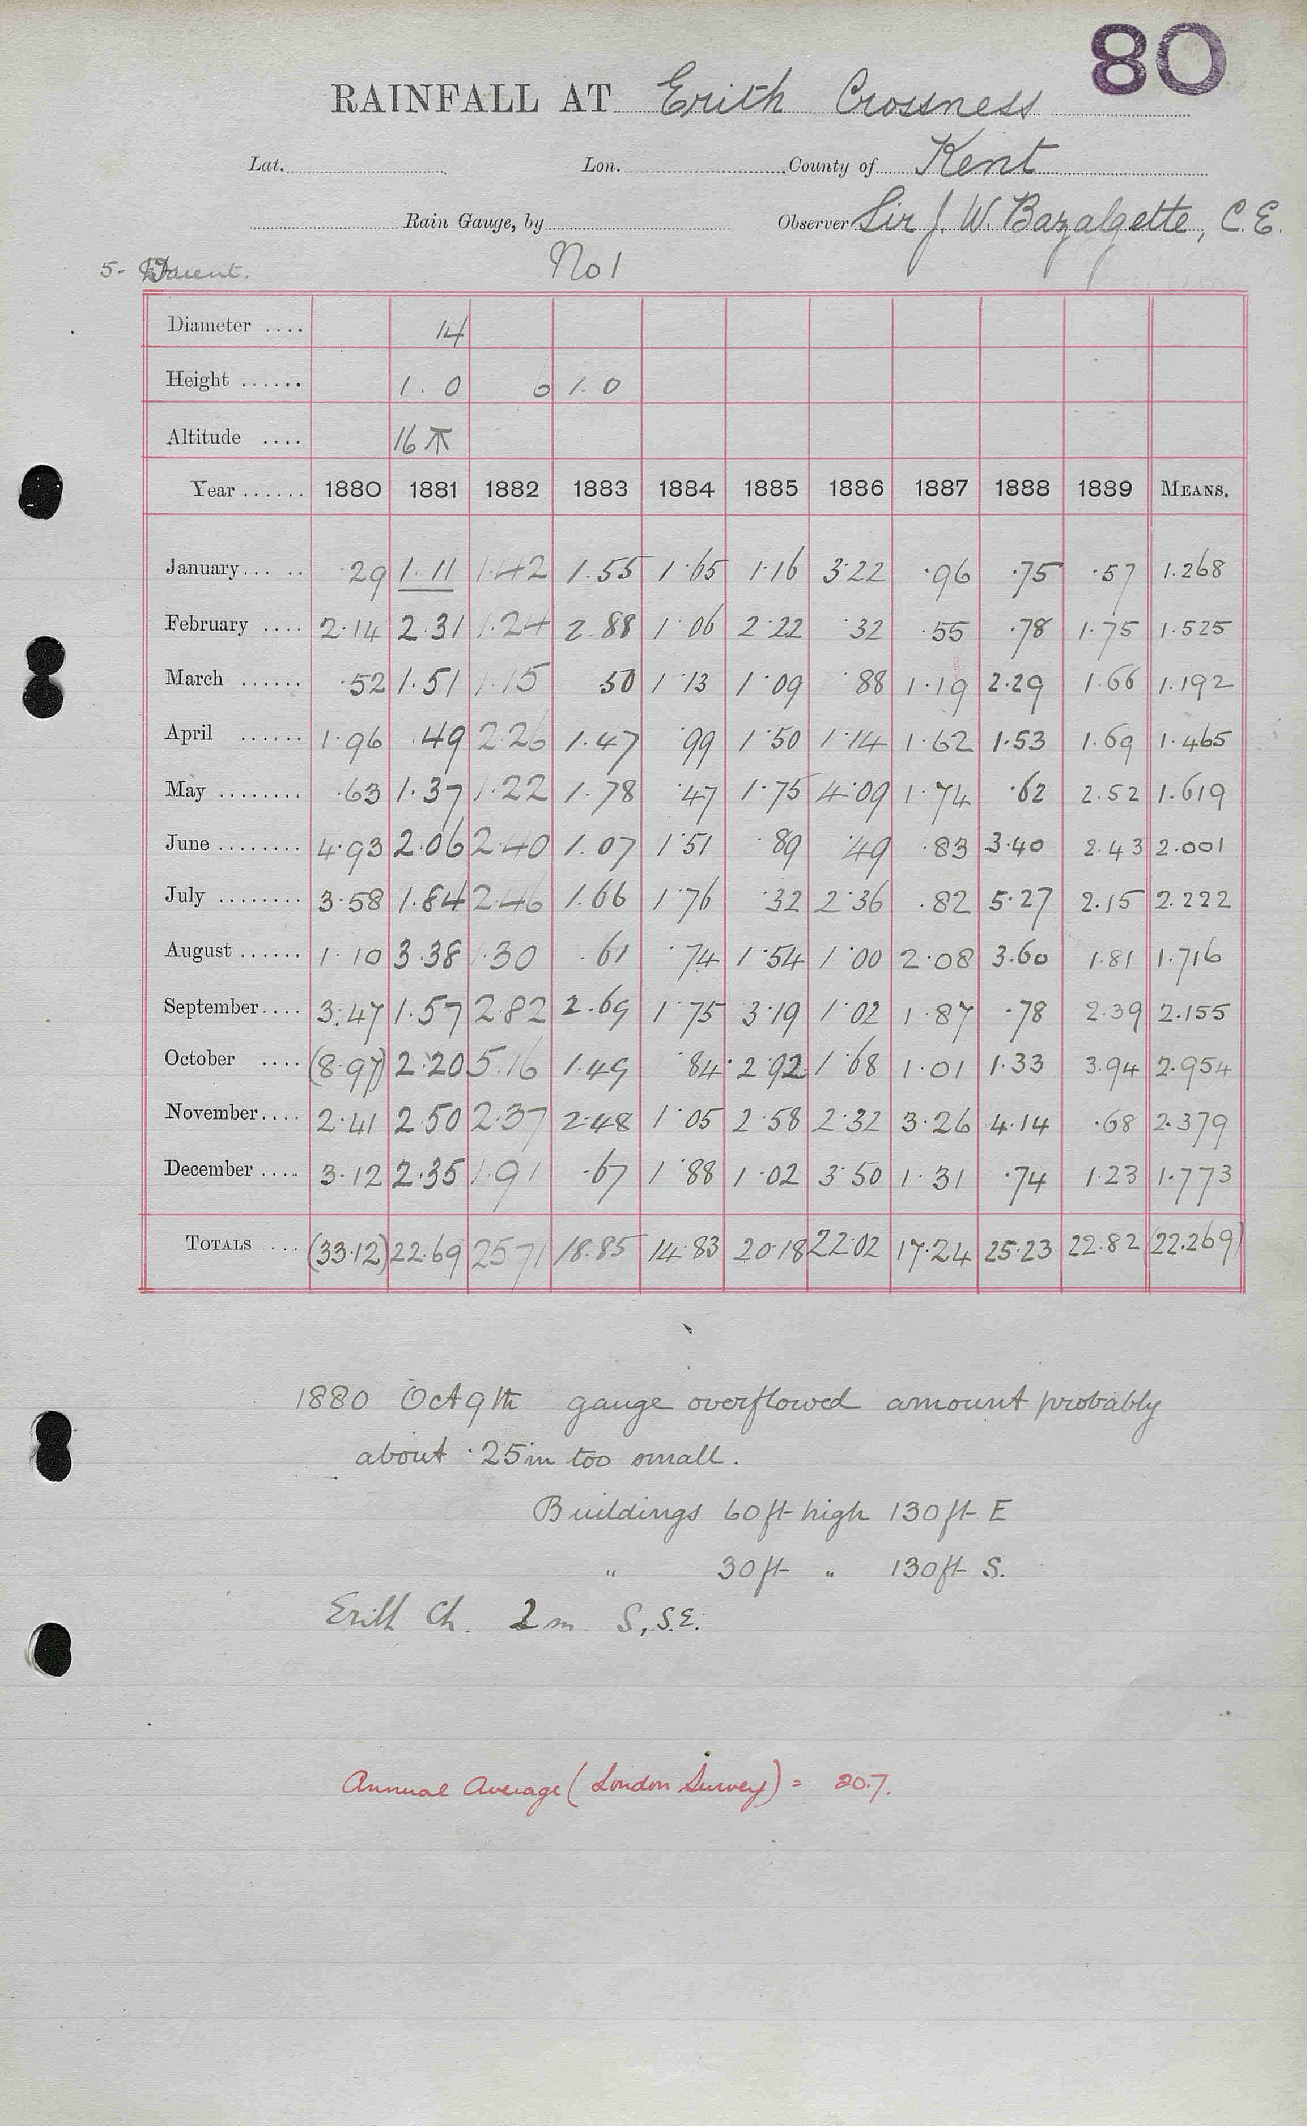 80
RAINFALL AT Erith Crossness
Lat. Lon. County of Kent
Rain Gauge, by Observer Sir J. W. Bazalgette, C.E.
5- No 1
Diameter .... 14
Height ...... 1. 0 6 1. 0
Altitude .... 16
Year ...... 1880 1881 1882 1883 1884 1885 1886 1887 1888 1889 MEANS.
January ... .. .29 1.11 1.42 1.55 1.65 1.16 3.22 .96 .75 .57 1.268
February .... 2.14 2.31 1.24 2.88 1.06 2.22 .32 .55 .78 1.75 1.525
March ...... .52 1.51 1.15 .50 1.13 1.09 .88 1.19 2.29 1.66 1.192
April ...... 1.96 .49 2.26 1.47 .99 1.50 1.14 1.62 1.53 1.69 1.465
May ........ .63 1.37 1.22 1.78 .47 1.75 4.09 1.74 .62 2.52 1.619
June ........ 4.93 2.06 2.40 1.07 1.51 .89 .49 .83 3.40 2.43 2.001
July ........ 3.58 1.84 2.46 1.66 1.76 .32 2.36 .82 5.27 2.15 2.222
August ...... 1.10 3.38 1.30 .61 .74 1.54 1.00 2.08 3.60 1.81 1.716
September .... 3.47 1.57 2.82 2.69 1.75 3.19 1.02 1.87 .78 2.39 2.155
October .... (8.97) 2.20 5.16 1.49 .84 2.92 1.68 1.01 1.33 3.94 2.954
November .... 2.41 2.50 2.37 2.48 1.05 2.58 2.32 3.26 4.14 .68 2.379
December .... 3.12 2.35 1.91 .67 1.88 1.02 3.50 1.31 .74 1.23 1.773
TOTALS ... (33.12) 22.69 25.71 18.85 14.83 20.18 22.02 17.24 25.23 22.82 (22.269)
1880 Oct 9th gauge overflowed amount probably
about .25 in too small.
Buildings 60 ft high 130 ft E
" 30 ft " 130 ft S.
Erith Ch. 2 m S, S.E.
Annual Average (London Survey) = 20.7.